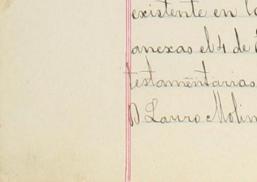 existente en la
anexas el 4 de
testamentarias
D. Lauro Molin